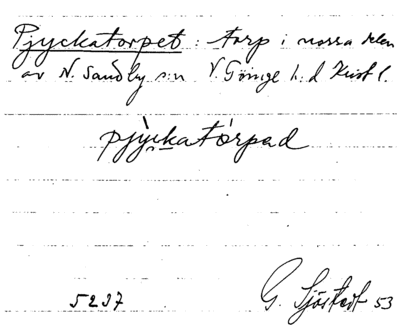 Pjyckatorpet : torp i norra delen
av N. Sandby sn V. Göinge h:d Krist l.
pjỳckatórpad
5237
G. Sjöstedt 53